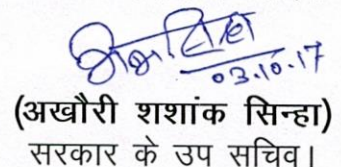 03.10.17
(अखौरी शशांक सिन्हा)
सरकार के उप सचिव।